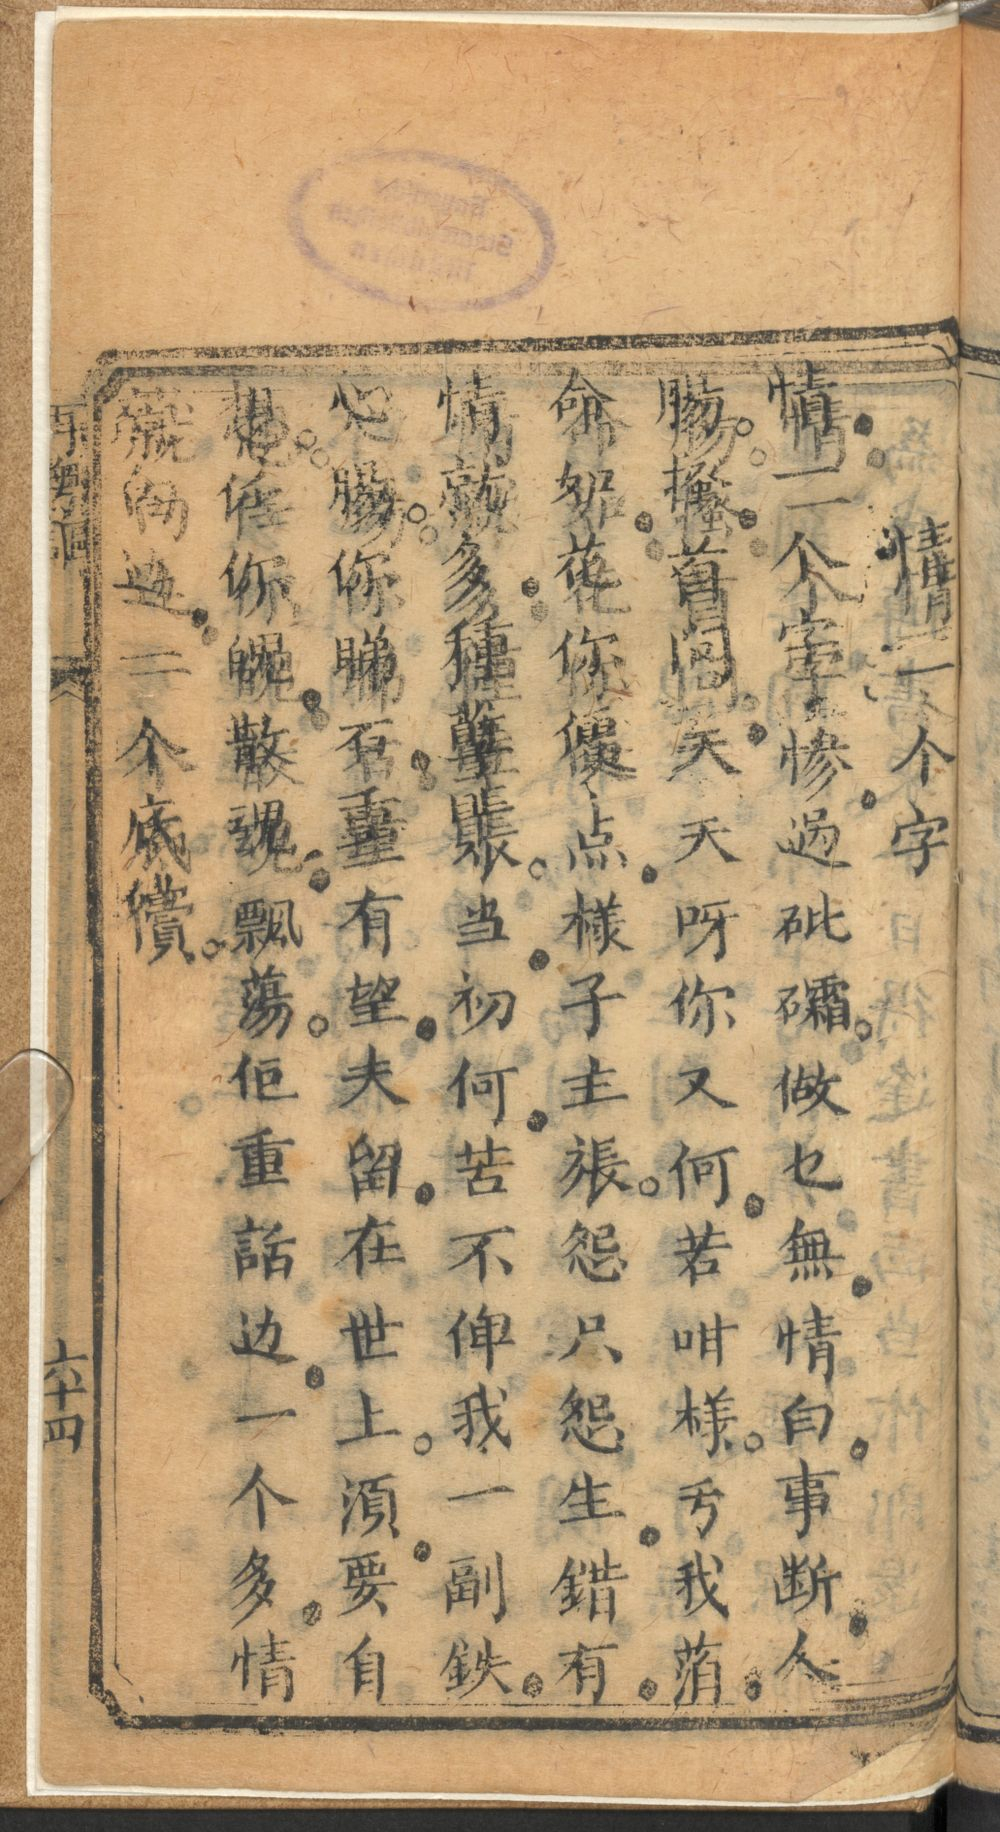 情一个字
情一个字惨過砒礵做乜無情白事断人
腸搔首問天天呀你又何若咁樣亏我萡
命如花你点樣子主張怨只怨生錯有
情就多種孽賬当初何苦不俾我一副鉄
心腸你睇石重有望夫留在世上湏要自
想任你魄散魂飄蕩佢重話边一个多情
就向边一个底償
六十四